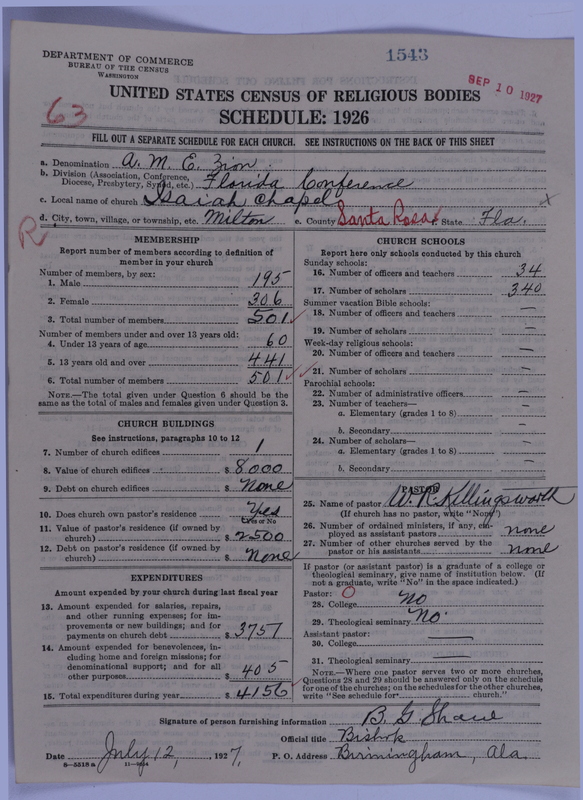 DEPARTMENT OF COMMERCE
BUREAU OF THE CENSUS
WASHINGTON
1543
SEP 10 1927
UNITED STATES CENSUS OF RELIGIOUS BODIES
SCHEDULE: 1926
63
FILL OUT A SEPARATE SCHEDULE FOR EACH CHURCH. SEE INSTRUCTIONS ON THE BACK OF THIS SHEET
a. Denomination A. M. E. Zion
b. Division (Association, Conference, Diocese, Presbytery, Synod, etc.) Florida Conference
c. Local name of church Isaiah Chapel
d. City, town, village, or township, etc. Milton e. County Santa Rosa f. State Fla. x
R
MEMBERSHIP
Report number of members according to definition of
member in your church
Number of members, by sex:
1. Male 195
2. Female 306
3. Total number of members 501
Number of members under and over 13 years old:
4. Under 13 years of age 60
5. 13 years old and over 441
6. Total number of members 501
NOTE.—The total given under Question 6 should be the
same as the total of males and females given under Question 3.
CHURCH BUILDINGS
See instructions, paragraphs 10 to 12
7. Number of church edifices 1
8. Value of church edifices $ 8000
9. Debt on church edifices $ None
10. Does church own pastor's residence Yes
Yes or No
11. Value of pastor's residence (if owned by
church) $ 2500
12. Debt on pastor's residence (if owned by
church) $ None
EXPENDITURES
Amount expended by your church during last fiscal year
13. Amount expended for salaries, repairs,
and other running expenses; for im-
provements or new buildings; and for
payments on church debt $ 3751
14. Amount expended for benevolences, in-
cluding home and foreign missions; for
denominational support; and for all
other purposes $ 405
15. Total expenditures during year $ 4156
CHURCH SCHOOLS
Report here only schools conducted by this church
Sunday schools:
16. Number of officers and teachers 34
17. Number of scholars 340
Summer vacation Bible schools:
18. Number of officers and teachers —
19. Number of scholars —
Week-day religious schools:
20. Number of officers and teachers —
21. Number of scholars —
Parochial schools:
22. Number of administrative officers —
23. Number of teachers—
a. Elementary (grades 1 to 8) —
b. Secondary —
24. Number of scholars—
a. Elementary (grades 1 to 8) —
b. Secondary —
PASTOR
25. Name of pastor W. R. Killingsworth
(If church has no pastor, write "None")
26. Number of ordained ministers, if any, em-
ployed as assistant pastors none
27. Number of other churches served by the
pastor or his assistants none
If pastor (or assistant pastor) is a graduate of a college or
theological seminary, give name of institution below. (If
not a graduate, write "No" in the space indicated.)
Pastor: O
28. College No
29. Theological seminary No.
Assistant pastor:
30. College —
31. Theological seminary —
NOTE.—Where one pastor serves two or more churches,
Questions 28 and 29 should be answered only on the schedule
for one of the churches; on the schedules for the other churches,
write "See schedule for church."
Signature of person furnishing information B. G. Shaw
Official title Bishop
Date July 12, 1927. P. O. Address Birmingham, Ala.